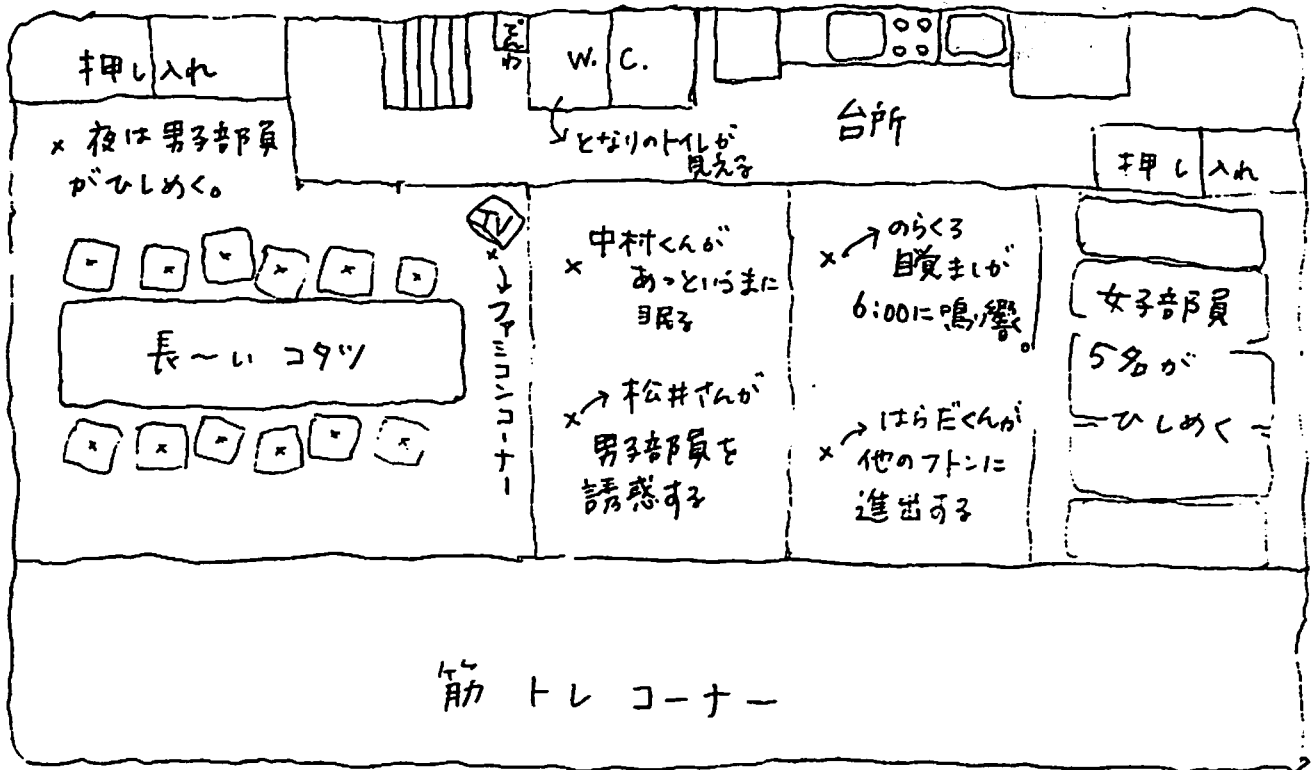 押し入れ
でんわ
W. C.
→となりのトイレが
見える
台所
押し入れ
× 夜は男子部員
がひしめく。
TV
×→ファミコンコーナー
長〜い コタツ
× 中村くんが
あっというまに
眠る
×→松井さんが
男子部員を
誘惑する
×→のらくろ
目覚ましが
6:00に鳴り響く。
×→はらだくんが
他のフトンに
進出する
女子部員
5名が
ひしめく
筋トレコーナー